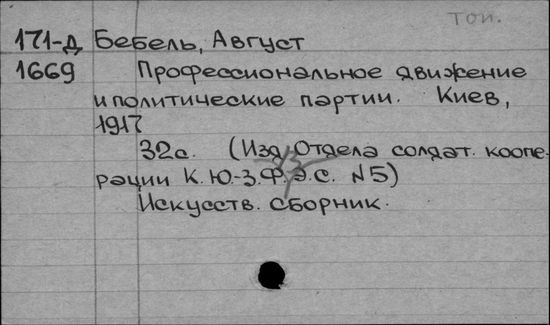 Топ.
171-д Бебель, Август
1669 Профессиональное движение
и политические партии. Киев,
1917
32с. (Изд. Отдела солдат. коопе-
рации К.Ю.-З.Ф.Э.С. №5)
Искусств. сборник.